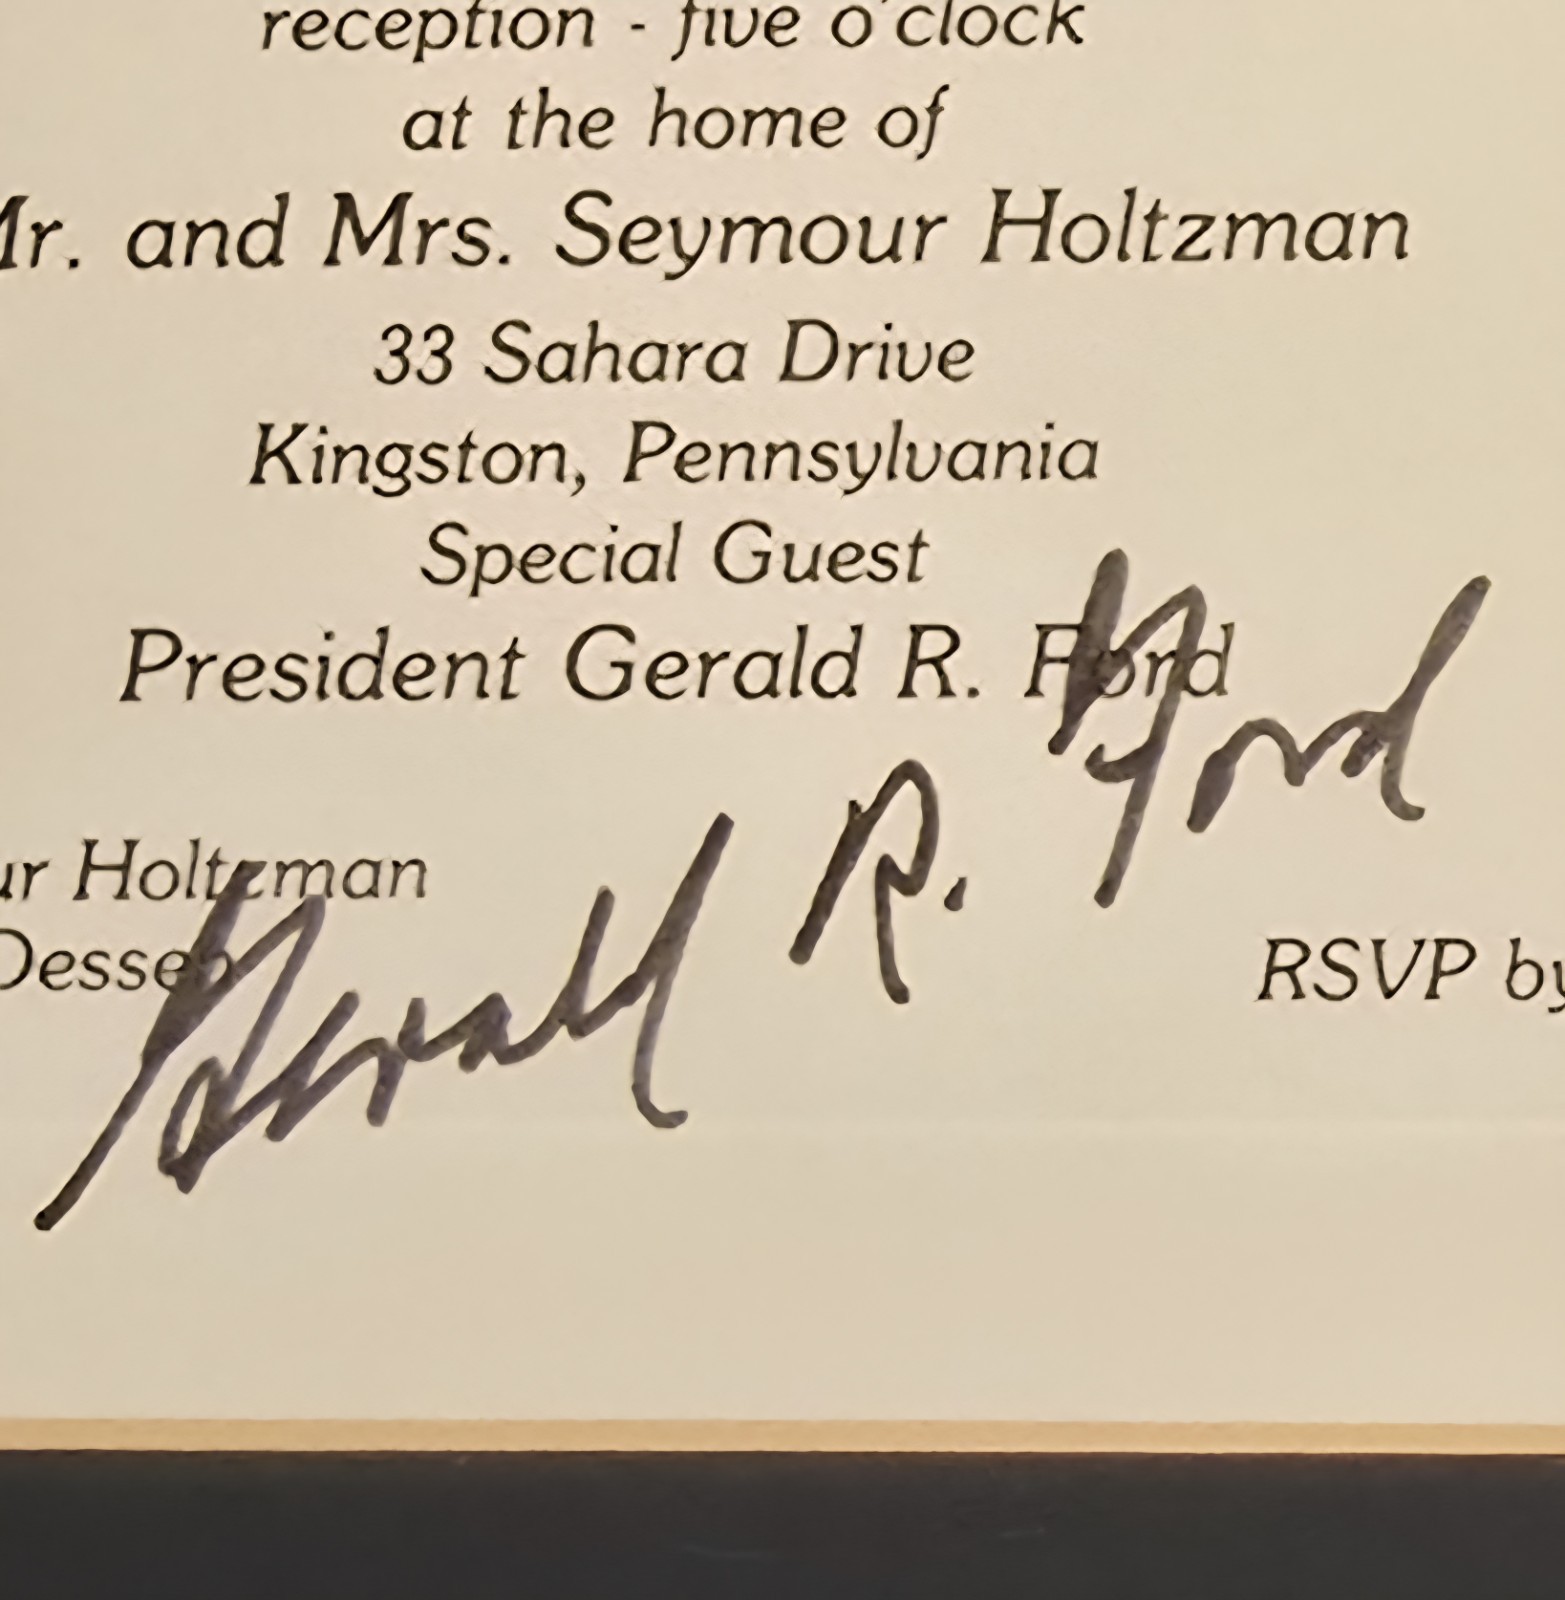 reception - five o'clock
at the home of
Mr. and Mrs. Seymour Holtzman
33 Sahara Drive
Kingston, Pennsylvania
Special Guest
President Gerald R. Ford
ur Holtzman
RSVP by
Gerald R. Ford